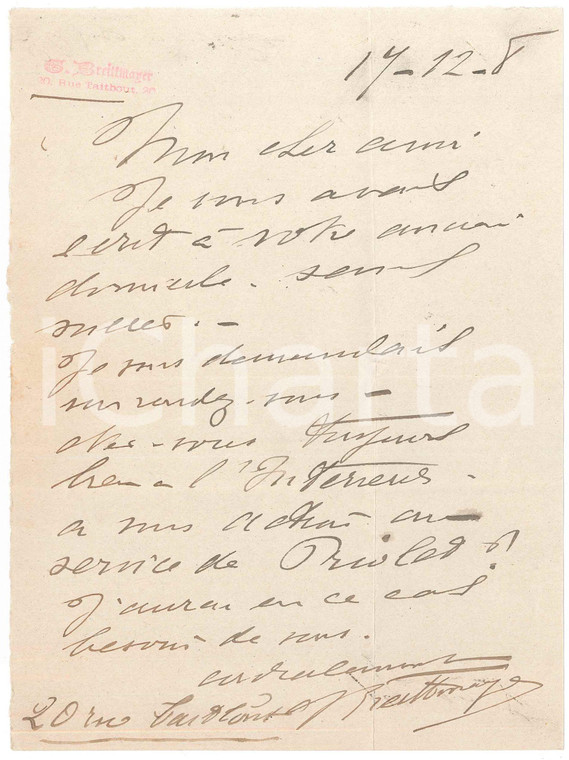 G. Breittmayer
20, Rue Taitbout, 20
17-12-8
Mon cher ami
Je vous avais
écrit à votre ancien
domicile. sans
succès. -
Je vous demandais
un rendez-vous -
êtes-vous toujours
à l'Intérieur -
à vous au
service de ?
J'aurai en ce cas
besoin de vous.
cordialement
20 rue Taitbout Breittmayer
iCharta